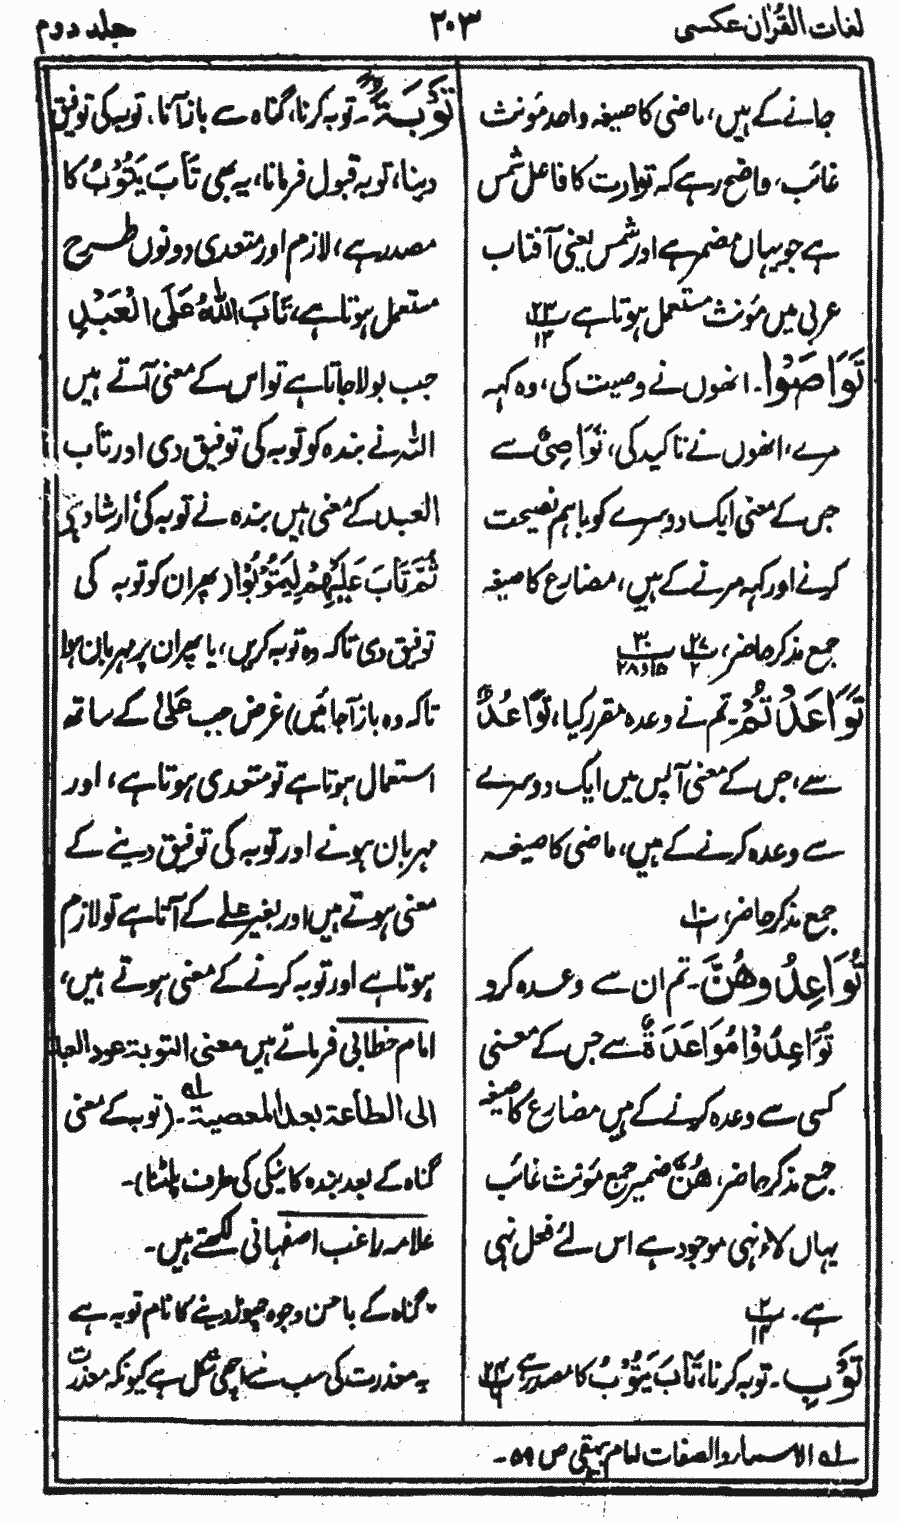 لغات القرآن عکسی
۲۰۳
جلد دوم
جانے کے ہیں، ماضی کا صیغہ واحد مؤنث
غائب، واضح رہے کہ توارت کا فاعل شمس
ہے جو یہاں مضمر ہے اور شمس یعنی آفتاب
عربی میں مؤنث مستعمل ہوتا ہے ۲۳/۱۲
تَوَاصَوْا۔ انھوں نے وصیت کی، وہ کہہ
مرے، انھوں نے تاکید کی، تَوَاصِیٌ سے
جس کے معنی ایک دوسرے کو باہم نصیحت
کرنے اور کہہ مرنے کے ہیں، مضارع کا صیغہ
جمع مذکر حاضر، ۲۷/۲ ۳۰/۱۵و۲۸
تَوَاعَدْتُّمْ۔ تم نے وعدہ مقرر کیا، تَوَاعُدٌ
سے، جس کے معنی آپس میں ایک دوسرے
سے وعدہ کرنے کے ہیں، ماضی کا صیغہ
جمع مذکر حاضر، ۱۰/۱
تُوَاعِدُوهُنَّ۔ تم ان سے وعدہ کرو
تُوَاعِدُوْا مُوَاعَدَةٌ سے جس کے معنی
کسی سے وعدہ کرنے کے ہیں مضارع کا صیغہ
جمع مذکر حاضر، هُنَّ ضمیر جمع مؤنث غائب
یہاں لاء نہی موجود ہے اس لئے فعل نہی
ہے۔ ۲/۱۴
تَوْبِ۔ توبہ کرنا، تَابَ يَتُوْبُ کا مصدر ہے ۲۴/۶
تَوْبَةً۔ توبہ کرنا، گناہ سے باز آنا، توبہ کی توفیق
دینا، توبہ قبول فرمانا، یہ بھی تَابَ يَتُوْبُ کا
مصدر ہے، لازم اور متعدی دونوں طرح
مستعمل ہوتا ہے، تَابَ اللهُ عَلَى الْعَبْدِ
جب بولا جاتا ہے تو اس کے معنی آتے ہیں
اللہ نے بندہ کو توبہ کی توفیق دی اور تاب
العبد کے معنی ہیں بندہ نے توبہ کی، ارشاد ہے
ثُمَّ تَابَ عَلَيْهِمْ لِيَتُوْبُوْا (پھر ان کو توبہ کی
توفیق دی تاکہ وہ توبہ کریں، یا پھر ان پر مہربان ہوا
تاکہ وہ باز آجائیں) غرض جب عَلٰی کے ساتھ
استعمال ہوتا ہے تو متعدی ہوتا ہے، اور
مہربان ہونے اور توبہ کی توفیق دینے کے
معنی ہوتے ہیں اور بغیر علے کے آتا ہے تو لازم
ہوتا ہے اور توبہ کرنے کے معنی ہوتے ہیں،
امام خطابی فرماتے ہیں معنی التوبة عود العبد
الی الطاعة بعد المعصیة۔ (توبہ کے معنی
گناہ کے بعد بندہ کا نیکی کی طرف پلٹنا)۔
علامہ راغب اصفہانی لکھتے ہیں۔
"گناہ کے باحسن وجوہ چھوڑ دینے کا نام توبہ ہے
یہ معذرت کی سب سے اچھی شکل ہے کیونکہ معذرت
لہ الاسماء والصفات امام بیہقی ص ۵۹۔